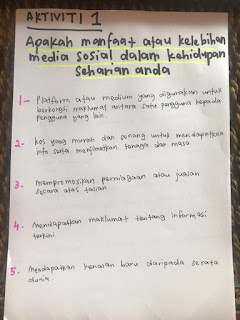 AKTIVITI 1
Apakah manfaat atau kelebihan
media sosial dalam kehidupan
seharian anda
1- Platform atau medium yang digunakan untuk
berkongsi maklumat antara satu pengguna kepada
pengguna yang lain.
2. Kos yang murah dan senang untuk mendapatkan
info serta menjimatkan tenaga dan masa
3. Mempromosikan perniagaan atau jualan
secara atas talian.
4. Mendapatkan maklumat tentang informasi
terkini
5. Mendapatkan kenalan baru daripada serata
dunia.